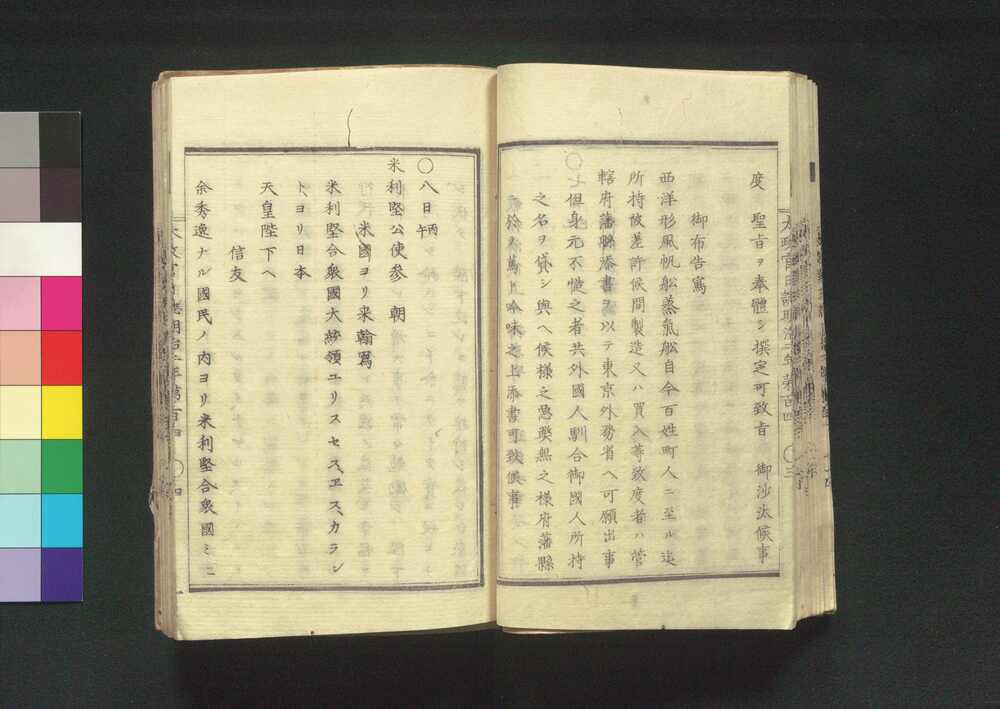 度　聖旨ヲ奉體シ撰定可致旨　御沙汰候事
御布告寫
西洋形風帆舩蒸氣舩自今百姓町人ニ至ル迄
所持被差許候間製造又ハ買入等致度者ハ管
轄府藩縣添書ヲ以テ東京外務省ヘ可願出事
但身元不慥之者共外國人馴合御國人所持
之名ヲ貸シ與ヘ候様之悪弊無之様府藩縣
ニ於ヰテ篤ト吟味之上添書可致候事
〇八日丙午
米利堅公使參　朝
米國ヨリ来翰寫
米利堅合衆國大統領ユリスセス、ヱス、カラン
ト、ヨリ日本
天皇陛下ヘ
信友
余秀逸ナル國民ノ内ヨリ米利堅合衆國ミニ